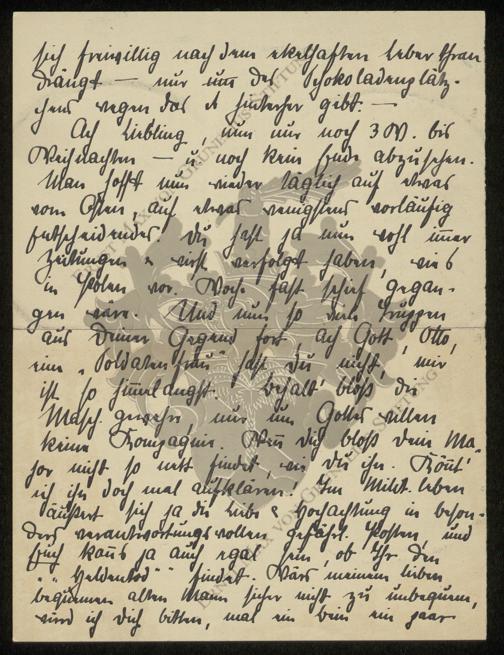 sich freiwillig nach dem ekelhaften Lebertran
drängt — nur um des Schokoladenplätz-
chens wegen das es hinterher gibt. —
Ach Liebling, nun nur noch 3 W. bis
Weihnachten — u. noch kein Ende abzusehen.
Man hofft nun wieder täglich auf etwas
vom Osten, auf etwas wenigstens vorläufig
Entscheidendes. Du hast ja nun wohl immer
Zeitungen & wirst verfolgt haben, wies
in Polen vor. Woche fast schief gegan-
gen wäre. Und nun so viele Truppen
aus Deiner Gegend fort, ach Gott, Otto,
eine „Soldatenfrau" hast Du nicht, mir
ist so himmelangst. Behalt bloß die
Masch. gewehre nur um Gottes willen
keine Kompagnie. Wenn Dich bloß dein Ma-
jor nicht so nett findet wie Du ihn. Könnt'
ich ihn doch mal aufklären. Im Milit. leben
äußert sich ja die Liebe & Hochachtung in beson-
ders verantwortungsvollen gefährl. Posten, und
Euch kanns ja auch egal sein, ob Ihr den
„„Heldentod"" findet. Wärs meinem lieben
bequemen alten Mann sicher nicht zu unbequem,
würd ich Dich bitten, mal ein Bein ein paar